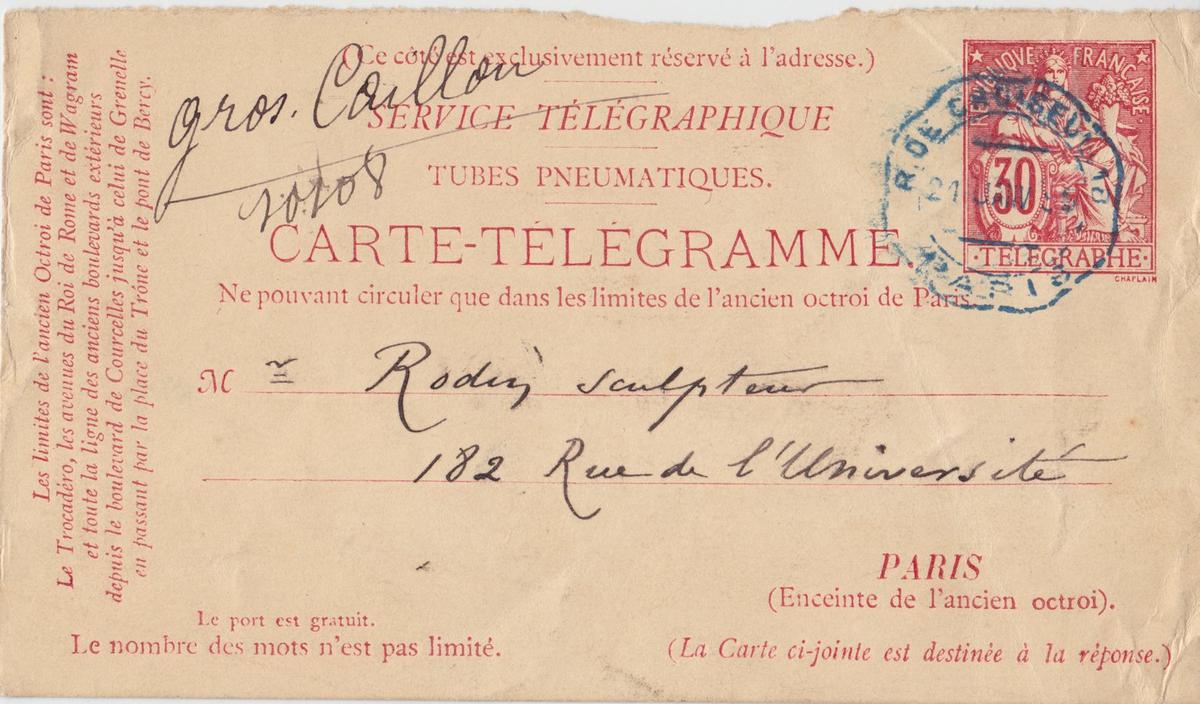 (Ce côté est exclusivement réservé à l'adresse.)
gros. Caillou
SERVICE TÉLÉGRAPHIQUE
10108
TUBES PNEUMATIQUES.
CARTE-TÉLÉGRAMME
Ne pouvant circuler que dans les limites de l'ancien octroi de Paris.
Mr Rodin sculpteur
182 Rue de l'Université
PARIS
(Enceinte de l'ancien octroi).
Le port est gratuit.
Le nombre des mots n'est pas limité.
(La Carte ci-jointe est destinée à la réponse.)
Les limites de l'ancien Octroi de Paris sont :
Le Trocadéro, les avenues du Roi de Rome et de Wagram
et toute la ligne des anciens boulevards extérieurs
depuis le boulevard de Courcelles jusqu'à celui de Grenelle
en passant par la place du Trône et le pont de Bercy.
FRANÇAISE
30
·TÉLÉGRAPHE·
CHAPLAIN
R. DE
21
PARIS